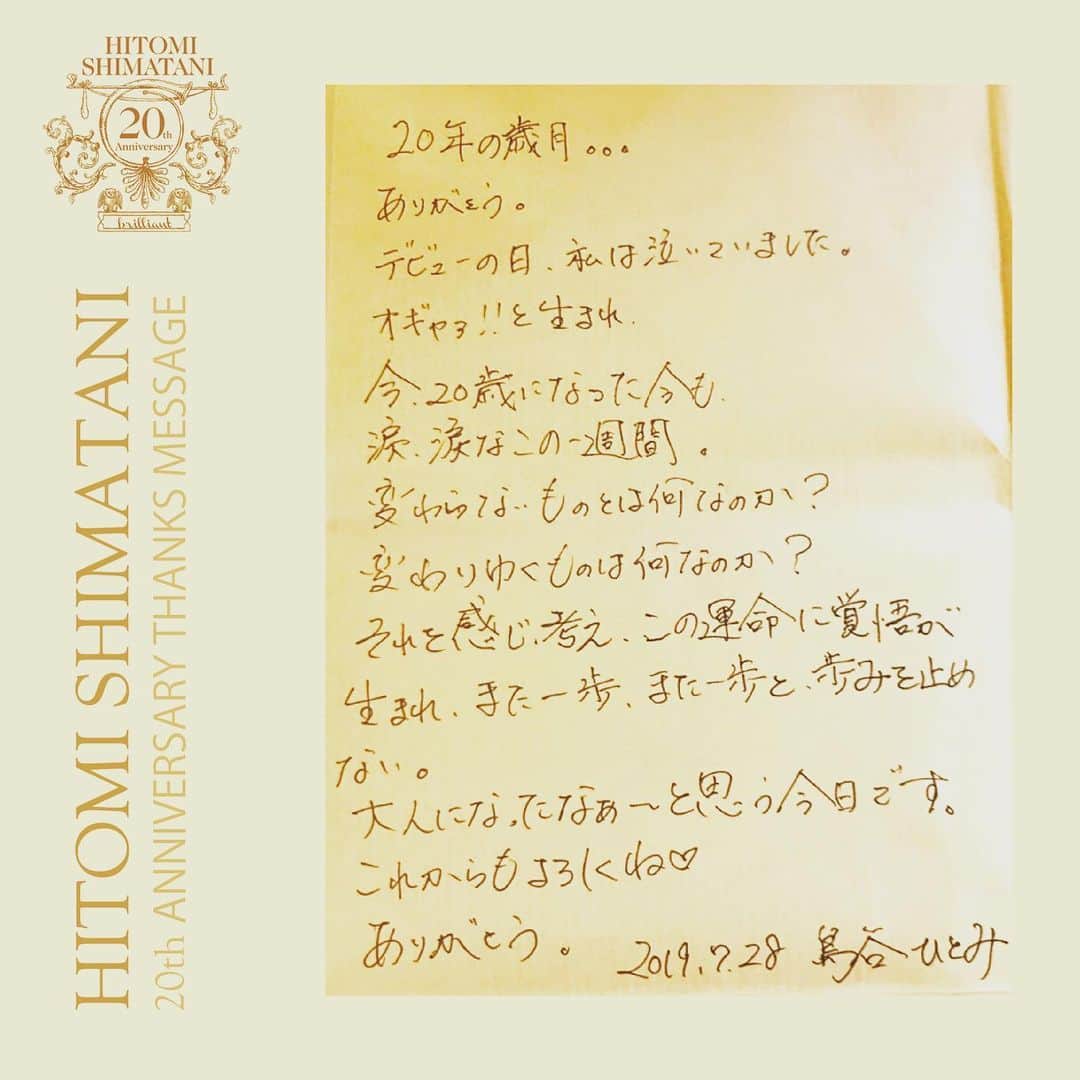 HITOMI
SHIMATANI
20th
Anniversary
brilliant
HITOMI SHIMATANI
20th ANNIVERSARY THANKS MESSAGE
20年の歳月。。。
ありがとう。
デビューの日、私は泣いていました。
オギャァ!!と生まれ、
今、20歳になった今も、
涙、涙なこの一週間。
変わらないものとは何なのか?
変わりゆくものは何なのか?
それを感じ、考え、この運命に覚悟が
生まれ、また一歩、また一歩と、歩みを止め
ない。
大人になったなぁ〜と思う今日です。
これからもよろしくね♡
ありがとう。
2019.7.28 島谷ひとみ